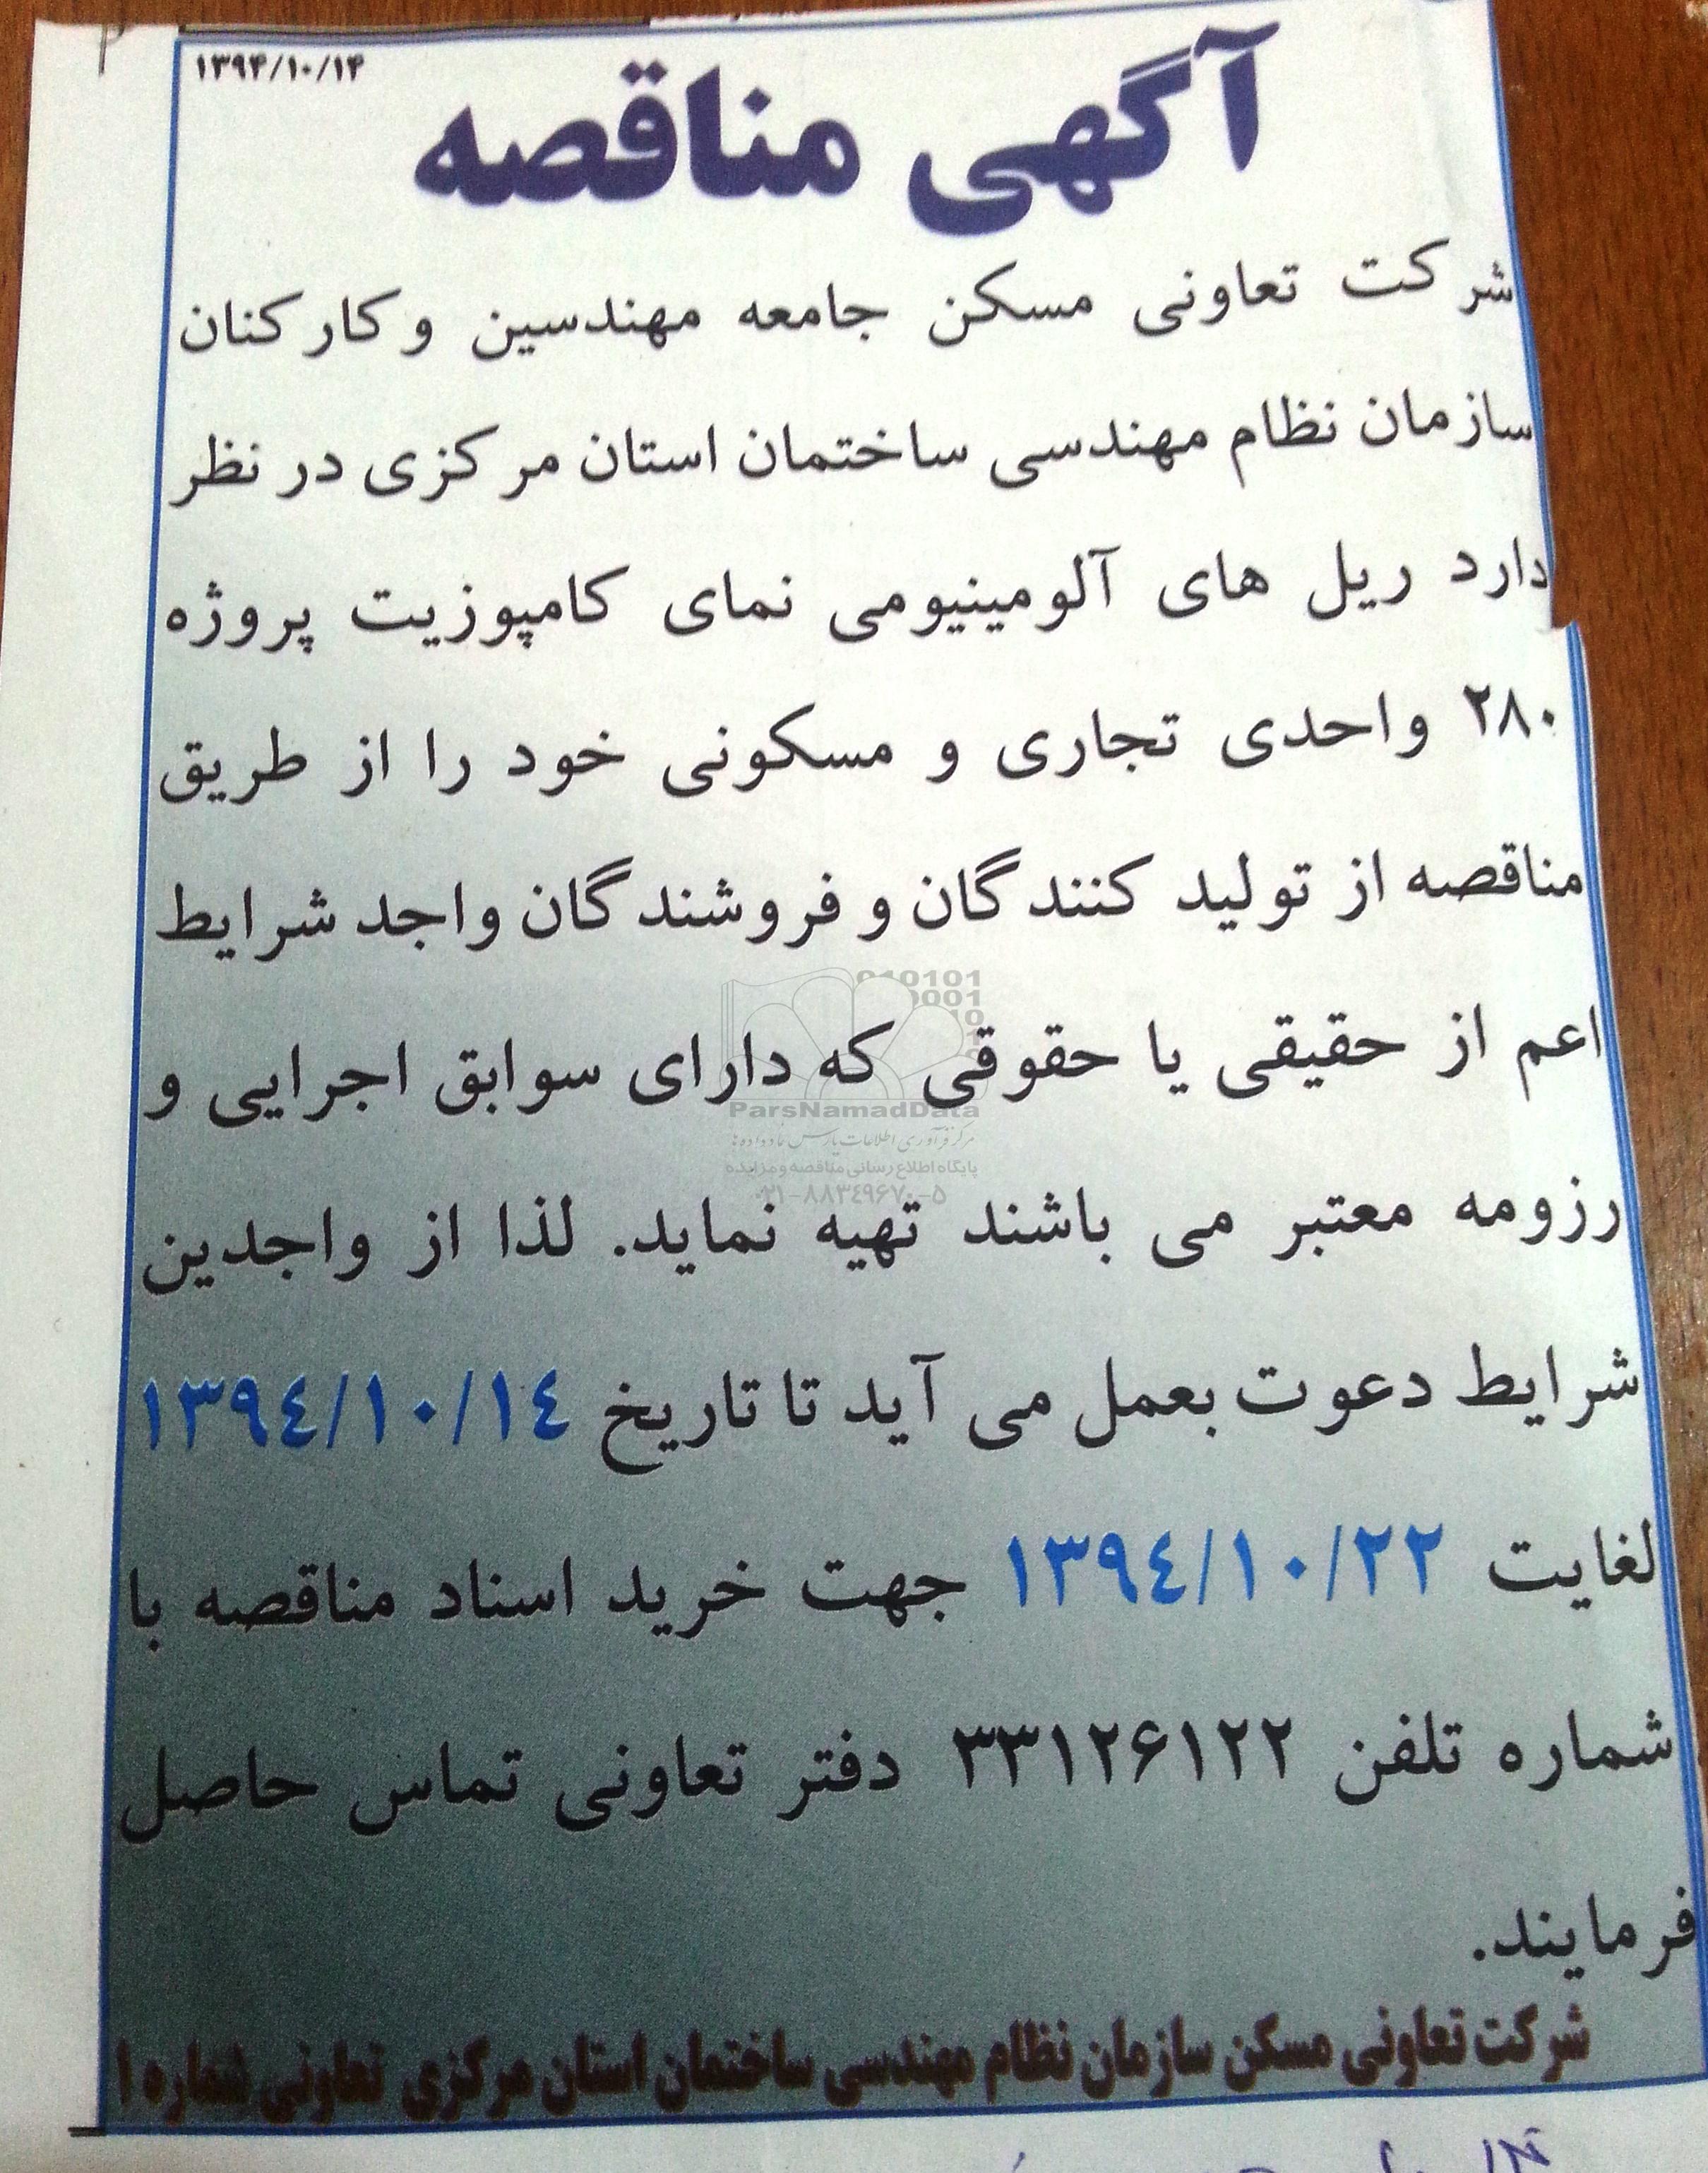 ۱۳۹۴/۱۰/۱۴
آگهی مناقصه
شرکت تعاونی مسکن جامعه مهندسین وکارکنان
سازمان نظام مهندسی ساختمان استان مرکزی در نظر
دارد ریل های آلومینیومی نمای کامپوزیت پروژه
۲۸۰ واحدی تجاری و مسکونی خود را از طریق
مناقصه از تولید کنندگان و فروشندگان واجد شرایط
اعم از حقیقی یا حقوقی که دارای سوابق اجرایی و
رزومه معتبر می باشند تهیه نماید. لذا از واجدین
شرایط دعوت بعمل می آید تا تاریخ ۱۳۹٤/۱۰/۱٤
لغایت ۱۳۹٤/۱۰/۲۲ جهت خرید اسناد مناقصه با
شماره تلفن ۳۳۱۲۶۱۲۲ دفتر تعاونی تماس حاصل
فرمایند.
شرکت تعاونی مسکن سازمان نظام مهندسی ساختمان استان مرکزی تعاونی شماره ۱
ParsNamadData
مرکز فرآوری اطلاعات پارس نماد داده ها
پایگاه اطلاع رسانی مناقصه و مزایده
۰۲۱-۸۸۳٤۹۶۷۰-۵